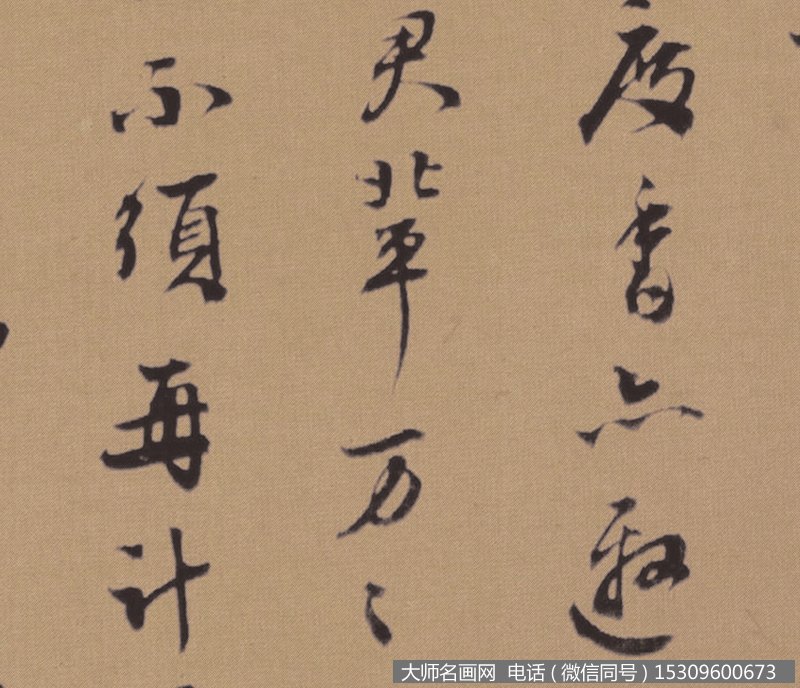 度香亦
君輩万〻
不須再計
大师名画网 电话（微信同号）15309600673